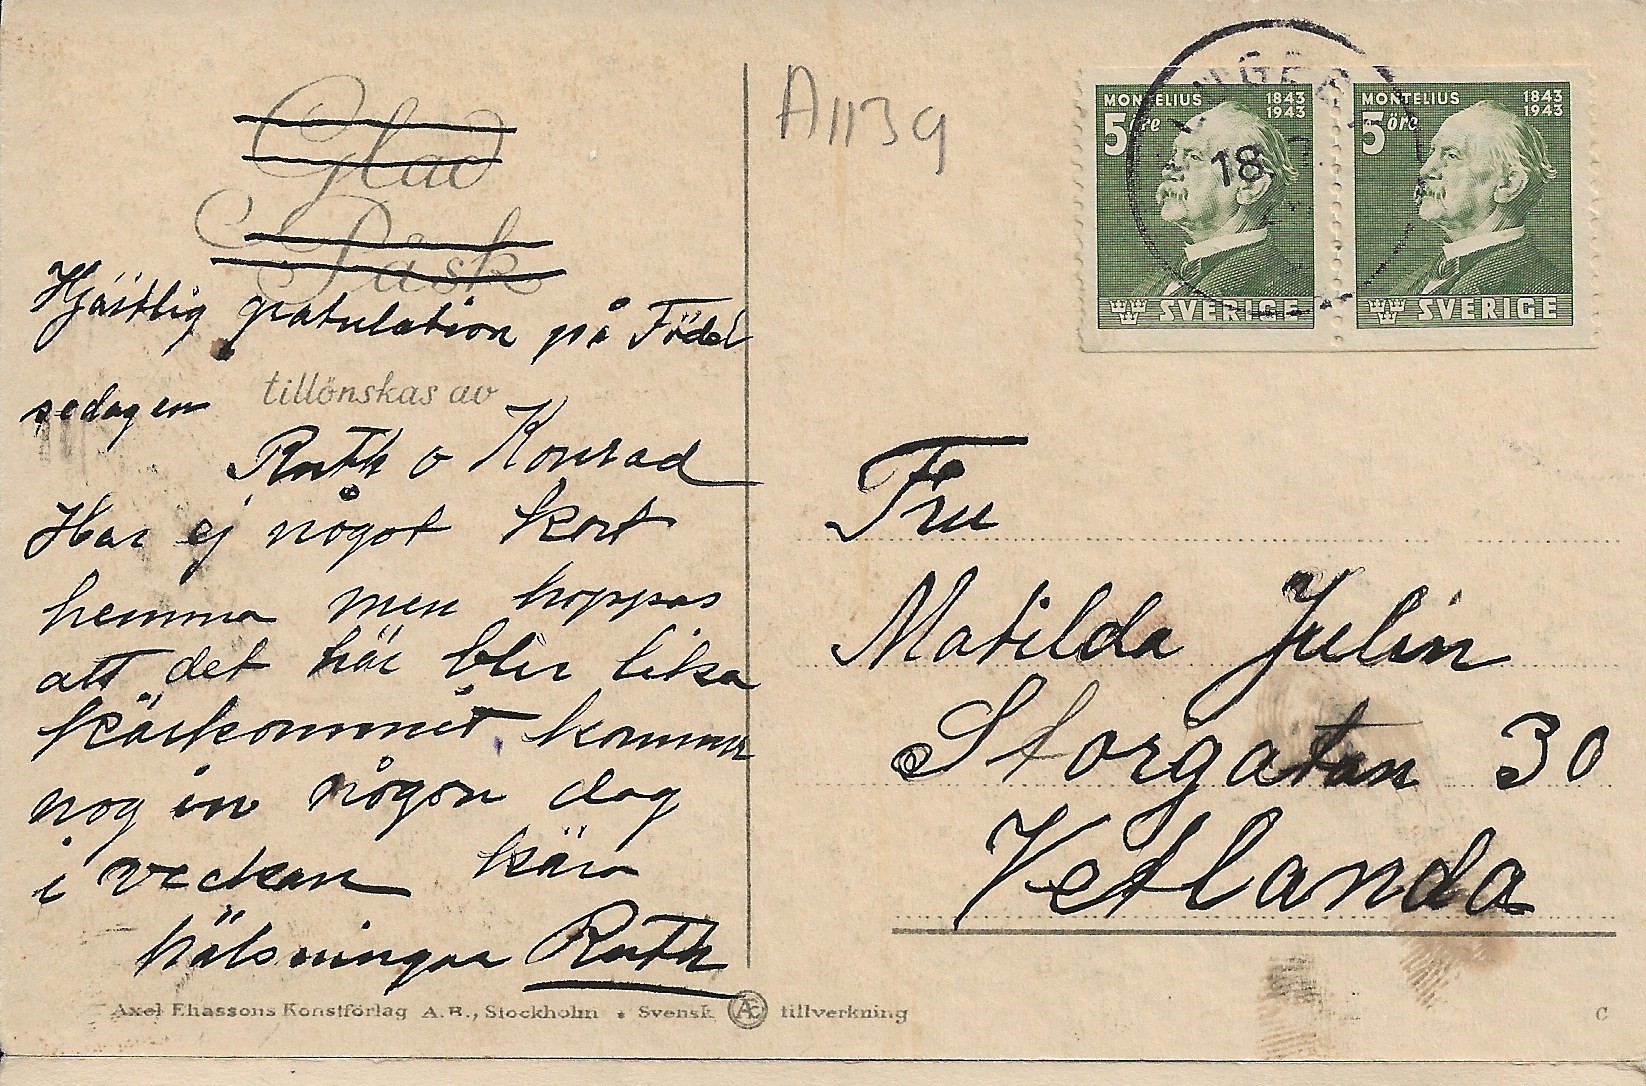 Glad
Påsk
Hjärtlig gratulation på Född
sedagen
tillönskas av
Ruth o Konrad
Har ej något kort
hemma men hoppas
att det här blir lika
kärkommet kommer
nog in någon dag
i veckan kära
hälsningar Ruth
Axel Eliassons Konstförlag A.B., Stockholm • Svensk Æ tillverkning
A1139
MONTELIUS 1843
1943
5 öre
SVERIGE
MONTELIUS 1843
1943
5 öre
SVERIGE
18
Fru
Matilda Julin
Storgatan 30
Vetlanda
C